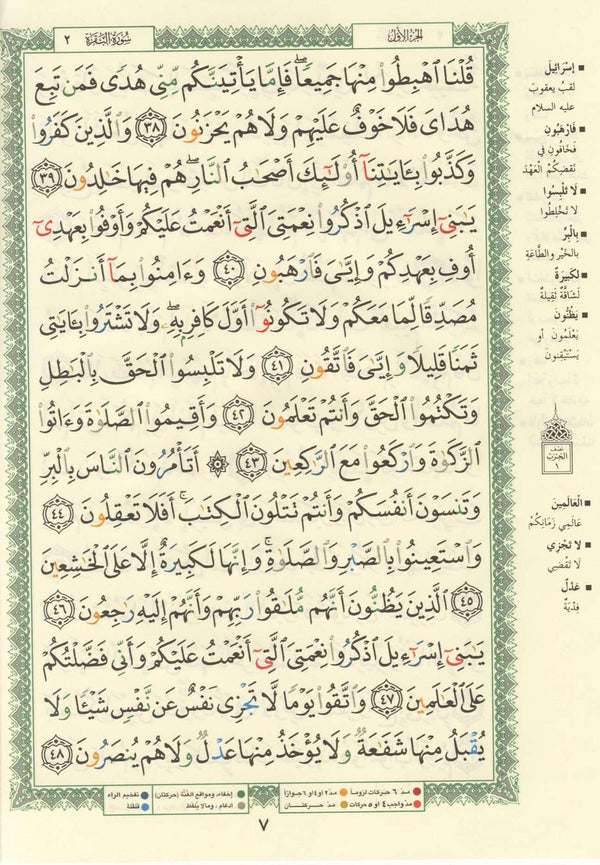 سُورَةُ البَقَرَة ٢
الجُزءُ الأوّل
قُلْنَا ٱهْبِطُوا۟ مِنْهَا جَمِيعًا ۖ فَإِمَّا يَأْتِيَنَّكُم مِّنِّى هُدًى فَمَن تَبِعَ
هُدَاىَ فَلَا خَوْفٌ عَلَيْهِمْ وَلَا هُمْ يَحْزَنُونَ ٣٨ وَٱلَّذِينَ كَفَرُوا۟
وَكَذَّبُوا۟ بِـَٔايَٰتِنَآ أُو۟لَٰٓئِكَ أَصْحَٰبُ ٱلنَّارِ ۖ هُمْ فِيهَا خَٰلِدُونَ ٣٩
يَٰبَنِىٓ إِسْرَٰٓءِيلَ ٱذْكُرُوا۟ نِعْمَتِىَ ٱلَّتِىٓ أَنْعَمْتُ عَلَيْكُمْ وَأَوْفُوا۟ بِعَهْدِىٓ
أُوفِ بِعَهْدِكُمْ وَإِيَّٰىَ فَٱرْهَبُونِ ٤٠ وَءَامِنُوا۟ بِمَآ أَنزَلْتُ
مُصَدِّقًا لِّمَا مَعَكُمْ وَلَا تَكُونُوٓا۟ أَوَّلَ كَافِرٍۭ بِهِۦ ۖ وَلَا تَشْتَرُوا۟ بِـَٔايَٰتِى
ثَمَنًا قَلِيلًا وَإِيَّٰىَ فَٱتَّقُونِ ٤١ وَلَا تَلْبِسُوا۟ ٱلْحَقَّ بِٱلْبَٰطِلِ
وَتَكْتُمُوا۟ ٱلْحَقَّ وَأَنتُمْ تَعْلَمُونَ ٤٢ وَأَقِيمُوا۟ ٱلصَّلَوٰةَ وَءَاتُوا۟
ٱلزَّكَوٰةَ وَٱرْكَعُوا۟ مَعَ ٱلرَّٰكِعِينَ ٤٣ ۞ أَتَأْمُرُونَ ٱلنَّاسَ بِٱلْبِرِّ
وَتَنسَوْنَ أَنفُسَكُمْ وَأَنتُمْ تَتْلُونَ ٱلْكِتَٰبَ ۚ أَفَلَا تَعْقِلُونَ ٤٤
وَٱسْتَعِينُوا۟ بِٱلصَّبْرِ وَٱلصَّلَوٰةِ ۚ وَإِنَّهَا لَكَبِيرَةٌ إِلَّا عَلَى ٱلْخَٰشِعِينَ
٤٥ ٱلَّذِينَ يَظُنُّونَ أَنَّهُم مُّلَٰقُوا۟ رَبِّهِمْ وَأَنَّهُمْ إِلَيْهِ رَٰجِعُونَ ٤٦
يَٰبَنِىٓ إِسْرَٰٓءِيلَ ٱذْكُرُوا۟ نِعْمَتِىَ ٱلَّتِىٓ أَنْعَمْتُ عَلَيْكُمْ وَأَنِّى فَضَّلْتُكُمْ
عَلَى ٱلْعَٰلَمِينَ ٤٧ وَٱتَّقُوا۟ يَوْمًا لَّا تَجْزِى نَفْسٌ عَن نَّفْسٍ شَيْـًٔا وَلَا
يُقْبَلُ مِنْهَا شَفَٰعَةٌ وَلَا يُؤْخَذُ مِنْهَا عَدْلٌ وَلَا هُمْ يُنصَرُونَ ٤٨
إِسْرَائِيلَ
لقبُ يعقوبَ
عليه السلام
فَارْهَبُونِ
فَخَافُونِ فِي
نَقضِكُمُ الْعَهْدَ
لَا تَلْبِسُوا
لَا تَخْلِطُوا
بِالْبِرِّ
بالخَيْرِ والطَّاعَةِ
لَكَبِيرَةٌ
لَشَاقَّةٌ ثَقِيلَةٌ
يَظُنُّونَ
يَعْلَمُونَ أو
يَسْتَيْقِنُونَ
نصف
الحزب
١
الْعَالَمِينَ
عَالَمِي زَمَانِكُمْ
لَا تَجْزِي
لَا تَقْضِي
عَدْلٌ
فِدْيَةٌ
مدّ ٦ حركات لزوماً
مدّ ٢ أو ٤ أو ٦ جوازاً
إخفاء، ومواقع الغُنَّة (حركتان)
تفخيم الراء
مدّ واجب ٤ أو ٥ حركات
مدّ حركتان
ادغام، ومالا يُلفَظ
قلقلة
٧